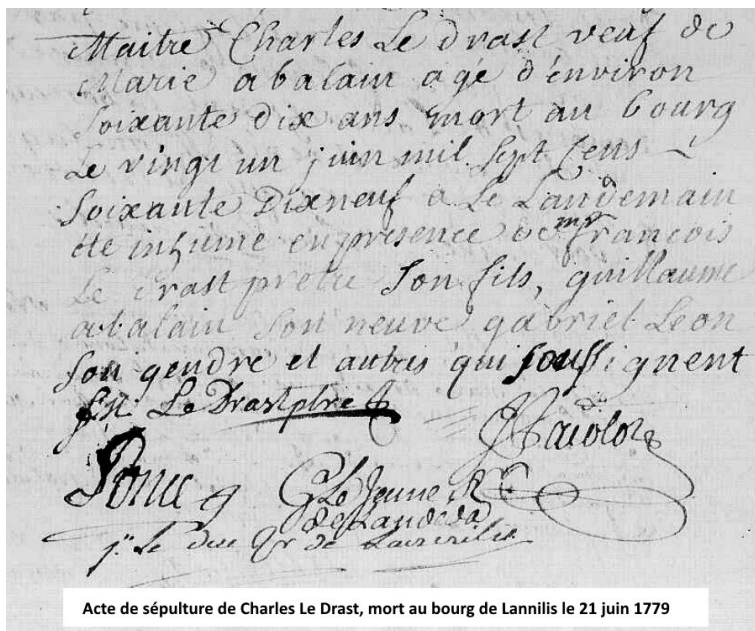 Maitre Charles Le drast veuf de
Marie abalain agé d'environ
soixante dix ans mort au bourg
Le vingt un juin mil sept cens
soixante Dixneuf a Le Landemain
été inhumé en presence de mr François
Le drast pretre son fils, guillaume
abalain son neuve gabriel Leon
son gendre et autres qui soussignent
Le Drast ptre
G Le Jeune Rr
de Landeda
Le duc Cr de Lannilis
Acte de sépulture de Charles Le Drast, mort au bourg de Lannilis le 21 juin 1779